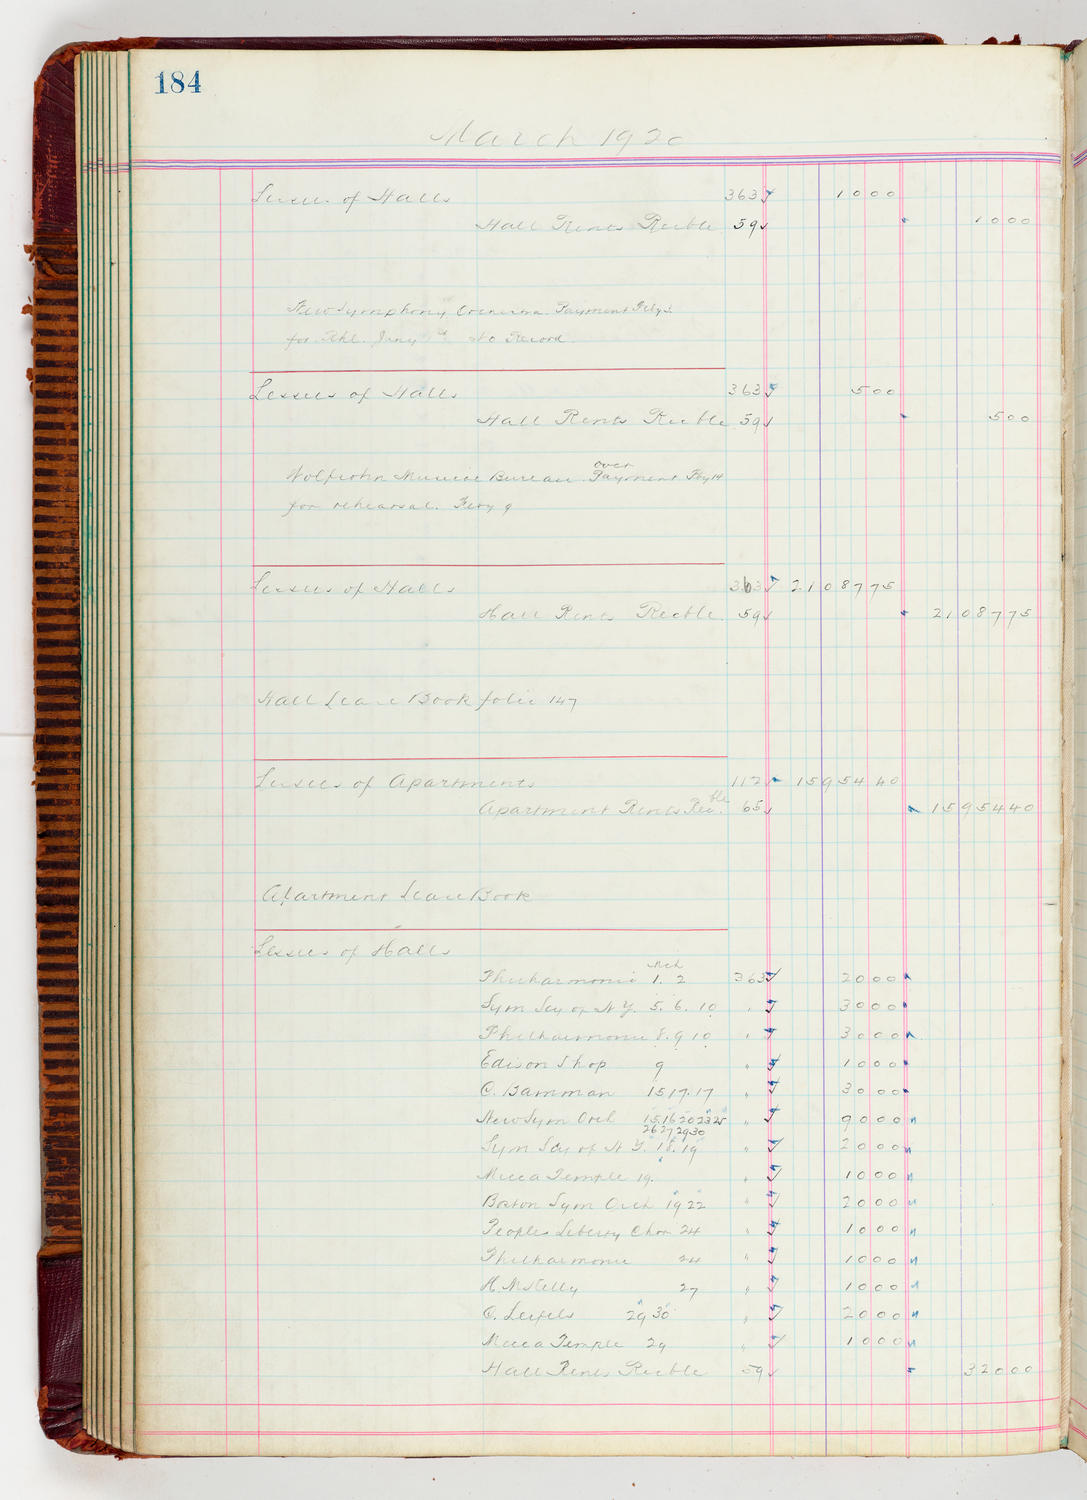 184
March 1920
Lessees of Halls 363 1000
Hall Rents Rec'ble 59 1000
New Symphony Orchestra Payment Feby
for Rhl. Jany No Record
Lessees of Halls 363 500
Hall Rents Rec'ble 59 500
over
Wolfsohn Musical Bureau Payment Feby 14
for rehearsal. Feby 9
Lessees of Halls 363 2108775
Hall Rents Rec'ble. 59 2108775
Hall Lease Book folio 147
Lessees of Apartments 112 1595440
Apartment Rents Rec'ble 65 1595440
Apartment Lease Book
Lessees of Halls
Mch
Philharmonic 1. 2 363 2000
Sym Socy of N.Y. 5. 6. 10 " 3000
Philharmonic 8. 9 10 " 3000
Edison Shop 9 " 1000
C. Bamman 15 17. 17 " 3000
New Sym Orch 15 16 20 23 25 " 9000
26 27 29 30
Sym Socy of N.Y. 18. 19 " 2000
Mecca Temple 19. " 1000
Boston Sym Orch 19 22 " 2000
Peoples Liberty Chor 24 " 1000
Philharmonic 24 " 1000
H. McKelly 27 " 1000
C. Leifels 29 30 " 2000
Mecca Temple 29 " 1000
Hall Rents Rec'ble 59 32000